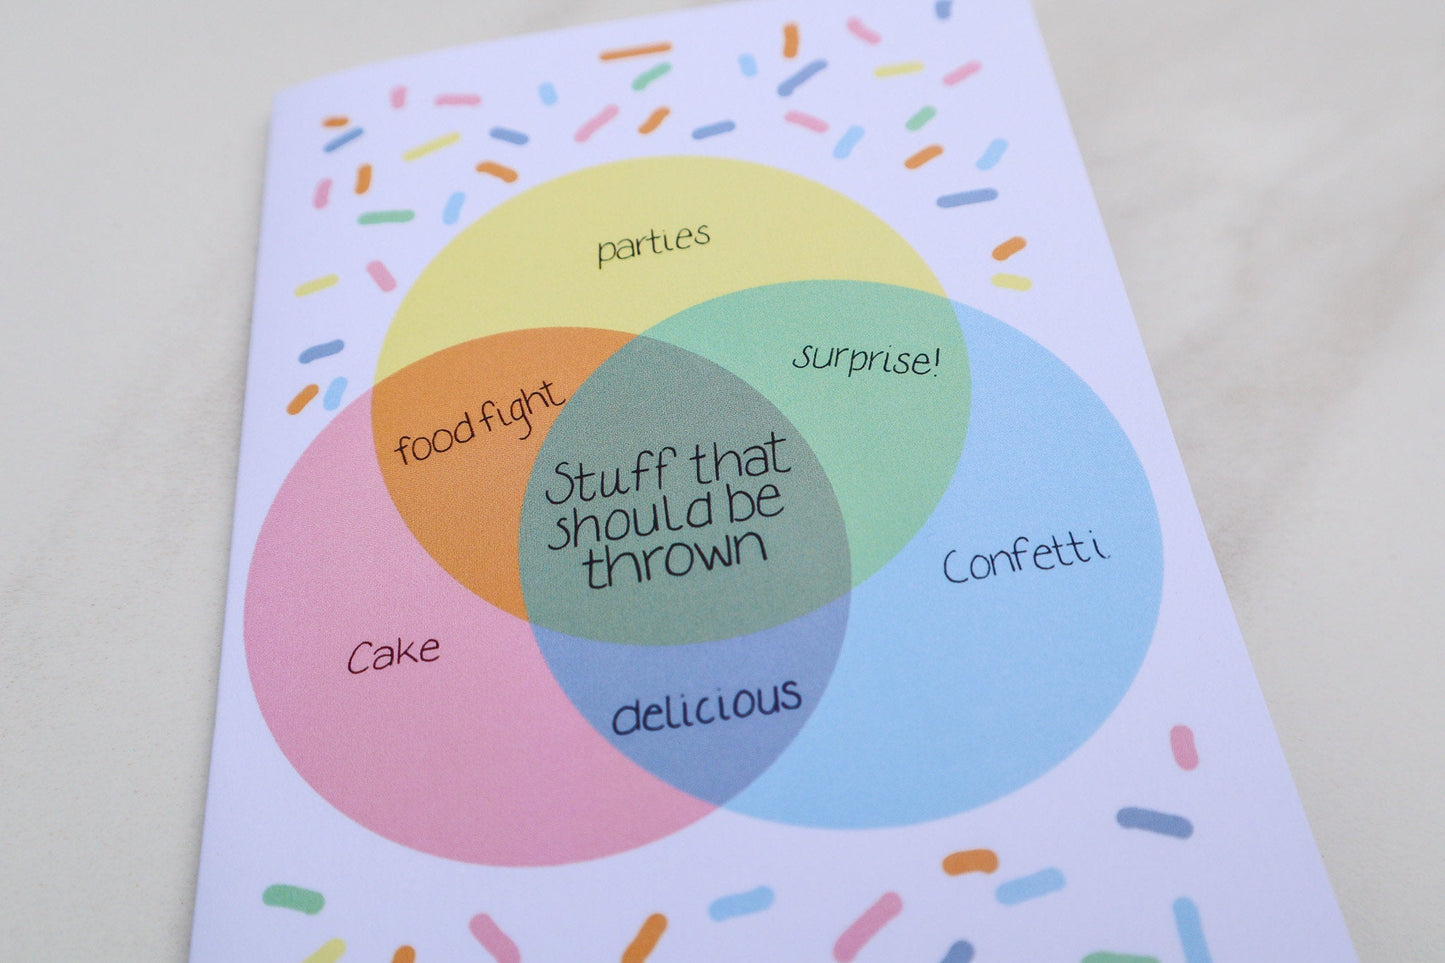 parties
surprise!
food fight
Stuff that
should be
thrown
Confetti
Cake
delicious